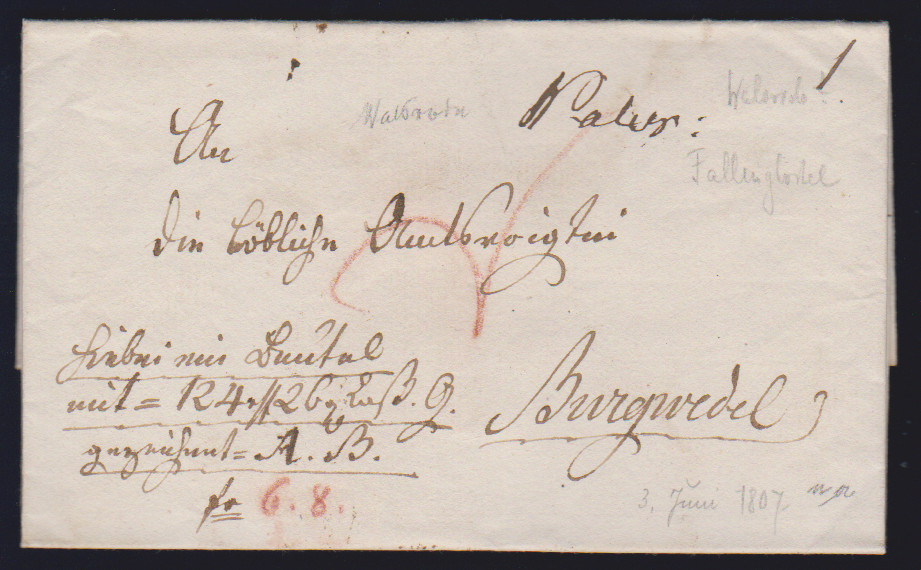 1.
Walsrode
Walsrode!
An
Fallingbostel
die löbliche Amtsvoigtei
hiebei ein Beutel
mit = 124 26 Cass. G.
gezeichnet = A. B.
Burgwedel
fr 6. 8.
3. Juni 1807